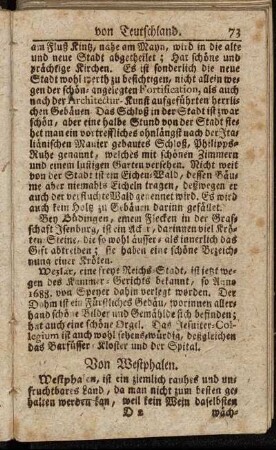 von Teutschland. 73
am Fluß Kintz, nahe am Mayn, wird in die alte
und neue Stadt abgetheilet; Hat schöne und
prächtige Kirchen. Es ist sonderlich die neue
Stadt wohl werth zu besichtigen, nicht allein we-
gen der schön-angelegten Fortification, als auch
nach der Architectur-Kunst aufgeführten herrli-
chen Gebäuen. Das Schloß in der Stadt ist zwar
schön, aber eine halbe Stund von der Stadt sie-
het man ein vortreffliches ohnlängst nach der Ita-
liänischen Manier gebautes Schloß, Philipps-
Ruhe genannt, welches mit schönen Zimmern
und einem lustigen Garten versehen. Nicht weit
von der Stadt ist ein Eichen-Wald, dessen Bäu-
me aber niemahls Eicheln tragen, deßwegen er
auch der verfluchte Wald genennet wird. Es wird
auch kein Holtz zu Gebäuen darinn gefället.
Bey Büdingen, einem Flecken in der Graf-
schafft Isenburg, ist ein Acker, darinnen viel Krö-
ten-Steine, die so wohl äusser- als innerlich das
Gift abtreiben; sie haben eine schöne Bezeich-
nung einer Kröten.
Wezlar, eine freye Reichs-Stadt, ist jetzt we-
gen des Kammer-Gerichts bekannt, so Anno
1688. von Speyer dahin verlegt worden. Der
Dohm ist ein Fürstliches Gebäu, worinnen aller-
hand schöne Bilder und Gemählde sich befinden;
hat auch eine schöne Orgel. Das Jesuiter-Col-
legium ist auch wohl sehenswürdig, deßgleichen
das Barfüsser-Kloster und der Spital.
Von Westphalen.
Westphalen, ist ein ziemlich rauhes und un-
fruchtbares Land, da man nicht zum besten ge-
halten werden kan, weil kein Wein daselbsten
D 2 wäch-